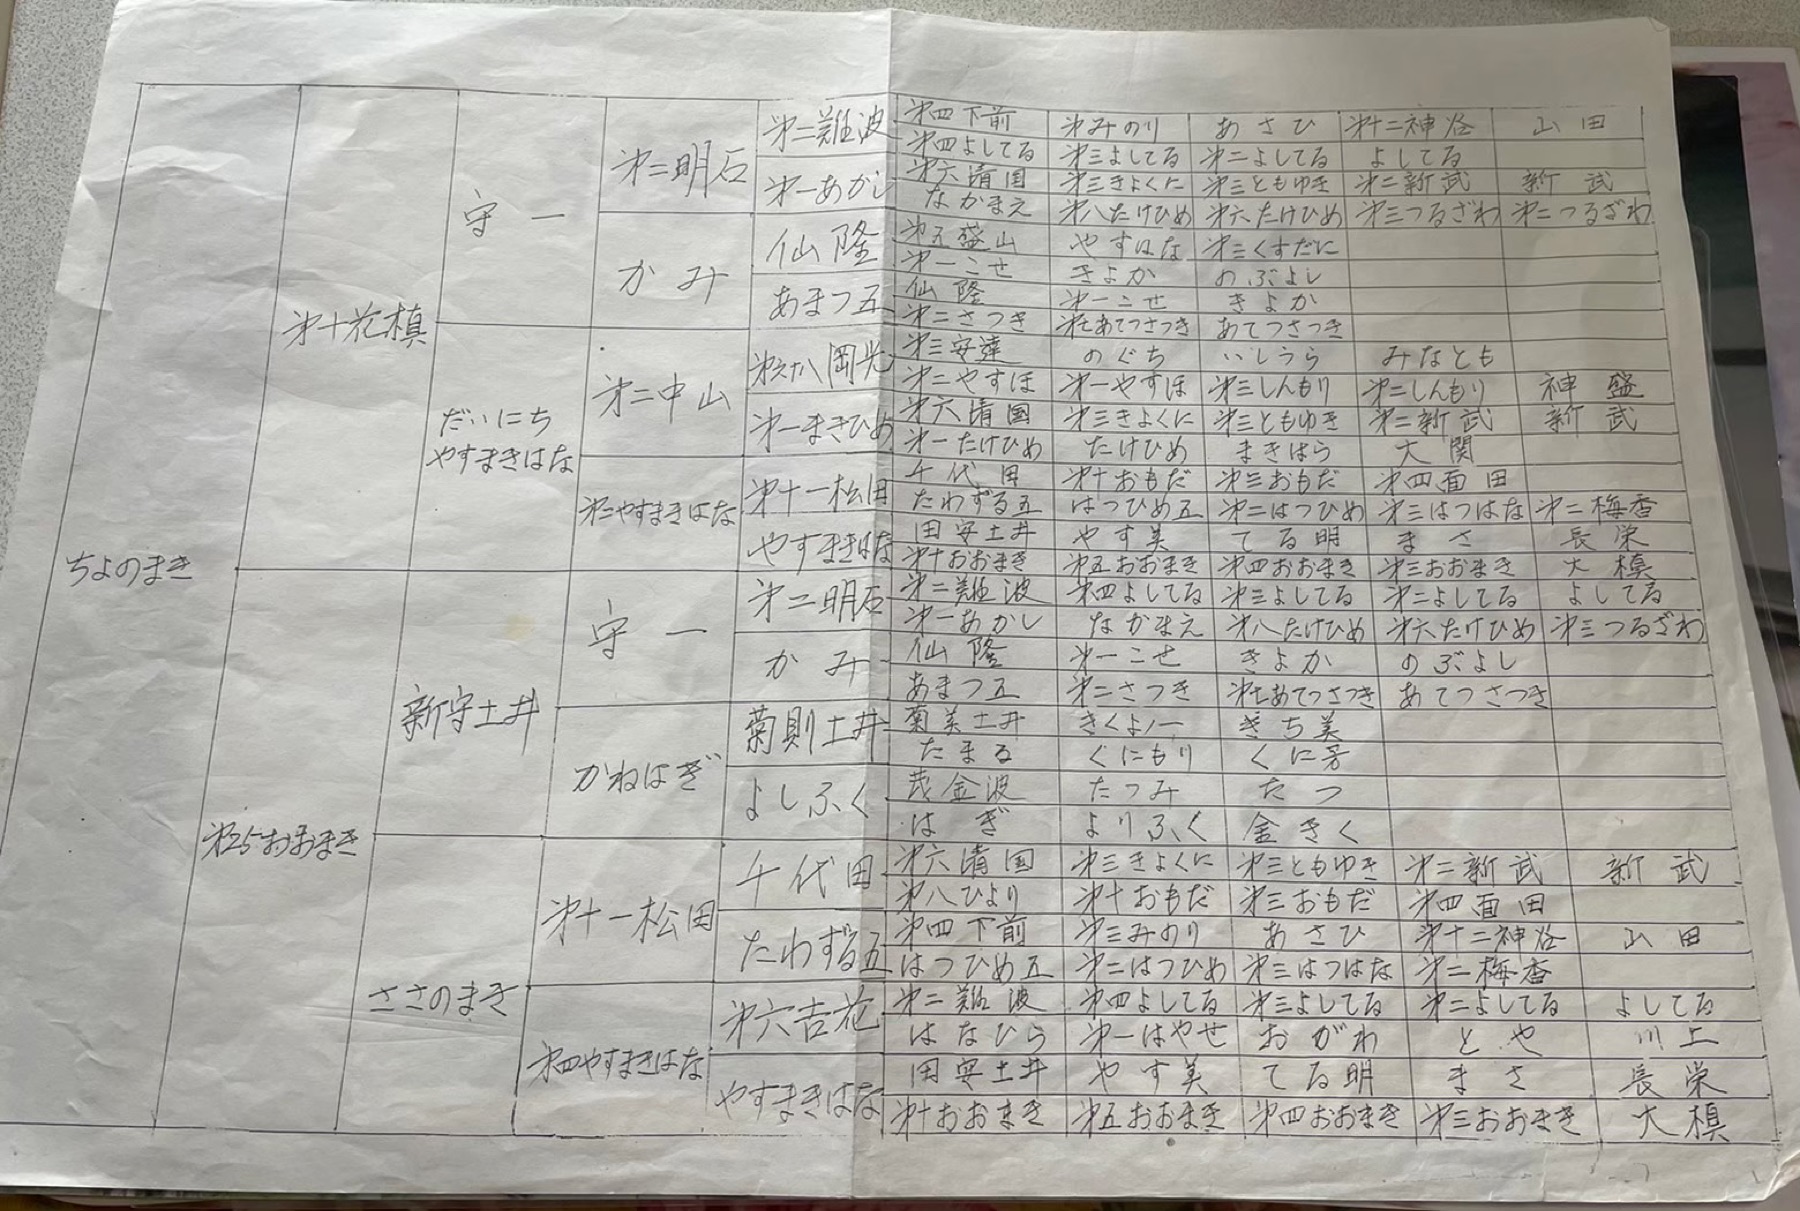 ちよのまき
才十花槙
才25おおまき
守一
だいにち
やすまきはな
新守土井
ささのまき
才二明石
かみ
才二中山
才二やすまきはな
守一
かねはぎ
才十一松田
才四やすまきはな
才二難波
才一あかし
仙隆
あまつ五
岡光
才一まきひめ
才十一松田
やすまきはな
才二明石
かみ
菊則土井
よしふく
千代田
たわずる五
才六吉花
やすまきはな
才四下前 才みのり あさひ 才十二神谷 山田
才四よしてる 才三よしてる 才二よしてる よしてる
才六清国 才三きよくに 才三ともゆき 才二新武 新武
なかまえ 才八たけひめ 才六たけひめ 才三つるざわ 才二つるざわ
才五盛山 やすはな 才三くすだに
才一こせ きよか のぶよし
仙隆 才一こせ きよか
才二さつき 才七あてつさつき あてつさつき
才三安達 のぐち いしうら みなとも
才二やすほ 才一やすほ 才三しんもり 才二しんもり 神盛
才六清国 才三きよくに 才三ともゆき 才二新武 新武
才一たけひめ たけひめ まきはら 大関
千代田 才十おもだ 才三おもだ 才四面田
たわずる五 はつひめ五 才二はつひめ 才三はつはな 才二梅香
田安土井 やす美 てる明 まさ 長栄
才十おおまき 才五おおまき 才四おおまき 才三おおまき 大槙
才二難波 才四よしてる 才三よしてる 才二よしてる よしてる
才一あかし なかまえ 才八たけひめ 才六たけひめ 才三つるざわ
仙隆 才一こせ きよか のぶよし
あまつ五 才二さつき 才七あてつさつき あてつさつき
菊美土井 きくよ八一 きち美
たまる くにもり くに芳
茂金波 たつみ たつ
はぎ よりふく 金きく
才六清国 才三きよくに 才三ともゆき 才二新武 新武
才八ひより 才十おもだ 才三おもだ 才四面田
才四下前 才三みのり あさひ 才十二神谷 山田
はつひめ五 才二はつひめ 才三はつはな 才二梅香
才二難波 才四よしてる 才三よしてる 才二よしてる よしてる
はなひら 才一はやせ おがわ とや 川上
田安土井 やす美 てる明 まさ 長栄
才十おおまき 才五おおまき 才四おおまき 才三おおまき 大槙